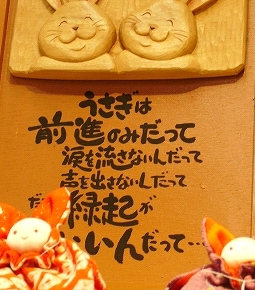 うさぎは
前進のみだって
涙を流さないんだって
声を出さないんだって
だ
縁起が
いいんだって…